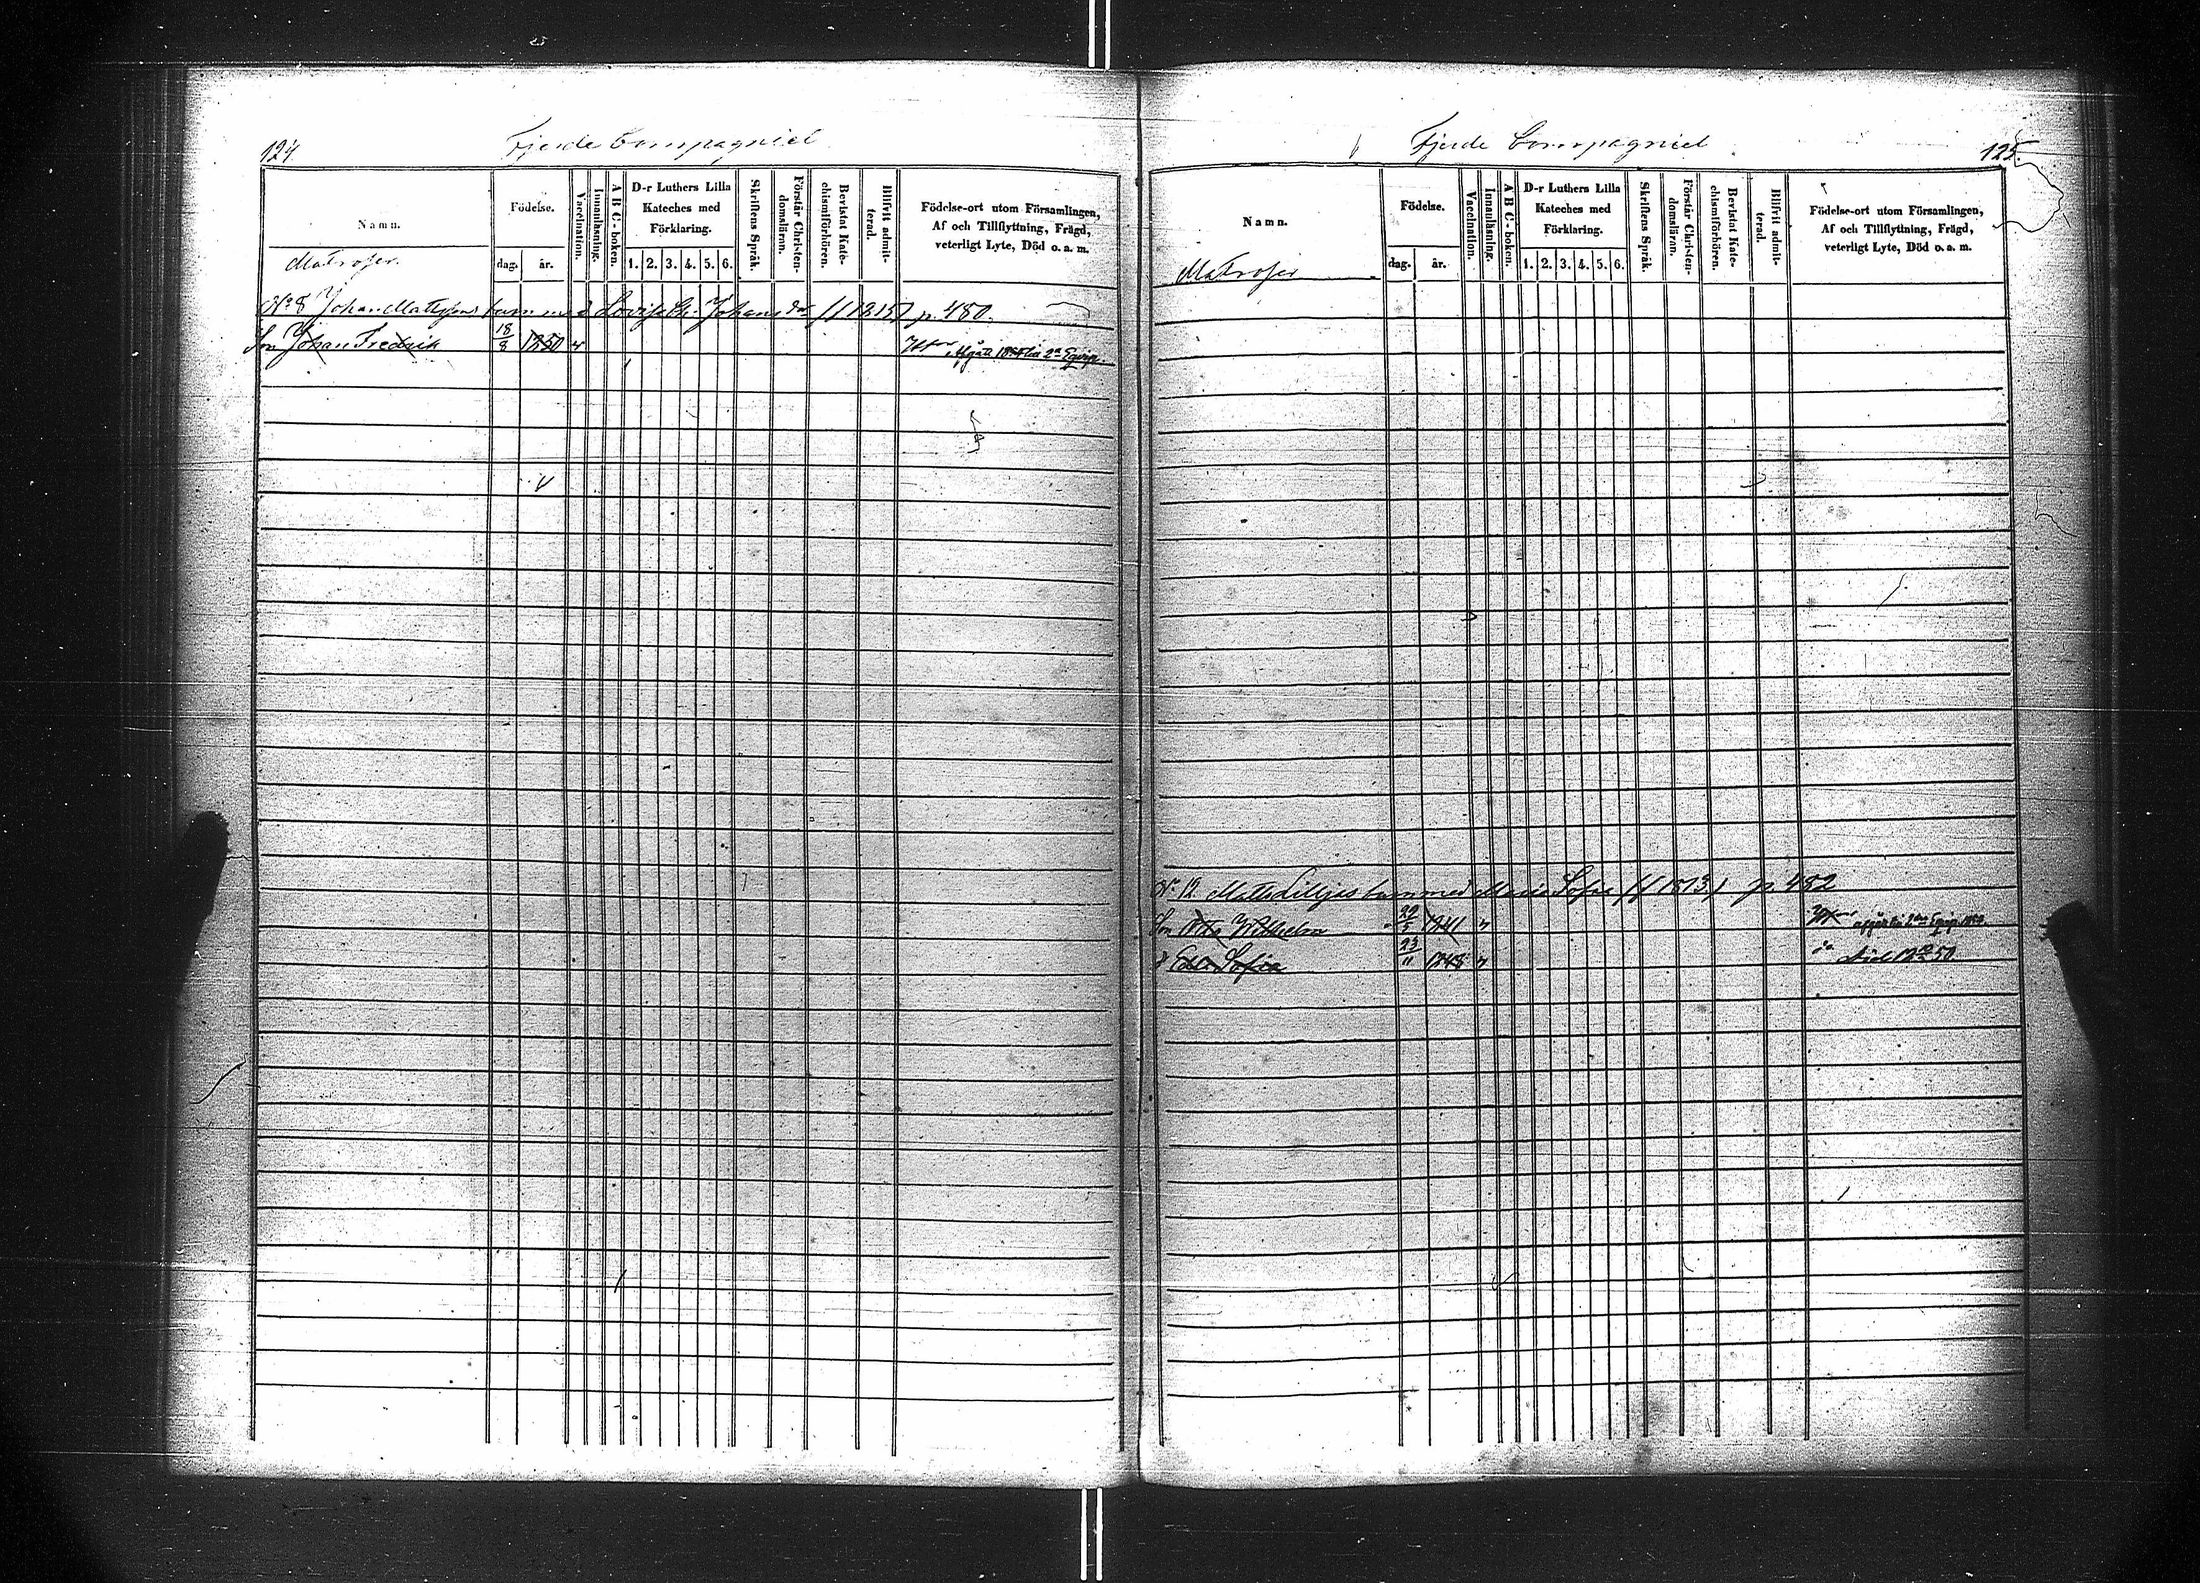 124.
Fjerde Compagniet
Namn.
Födelse.
dag. år.
Vaccination.
Innanläsning.
A B C-boken.
D-r Luthers Lilla Kateches med Förklaring.
1. 2. 3. 4. 5. 6.
Skriftens Språk.
Förstår Christendomsläran.
Bevistat Katechismiförhören.
Blifvit admitterad.
Födelse-ort utom Församlingen, Af och Tillflyttning, Frägd, veterligt Lyte, Död o. a. m.
Matroser.
No 8 Johan Mattssons barn med Lovisa Johansdr (f 1815) p. 480.
Son Johan Fredrik 18/8 1850 v Afgått till 2a Equip.
Fjerde Compagniet
125.
Namn.
Födelse.
dag. år.
Vaccination.
Innanläsning.
A B C-boken.
D-r Luthers Lilla Kateches med Förklaring.
1. 2. 3. 4. 5. 6.
Skriftens Språk.
Förstår Christendomsläran.
Bevistat Katechismiförhören.
Blifvit admitterad.
Födelse-ort utom Församlingen, Af och Tillflyttning, Frägd, veterligt Lyte, Död o. a. m.
Matroser
No 12 Matts Liljas barn med Maria Sofia (f 1813) p. 482
Son Otto Wilhelm 1841 v
d Sofia 23/11 1848 v död 50